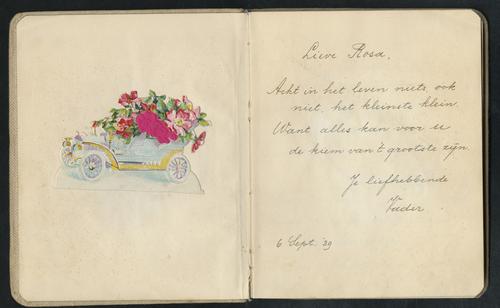 Lieve Rosa,
Acht in het leven niets, ook
niet het kleinste klein.
Want alles kan voor u
de kiem van 't grootste zijn.
Je liefhebbende
Vader.
6 Sept. '39